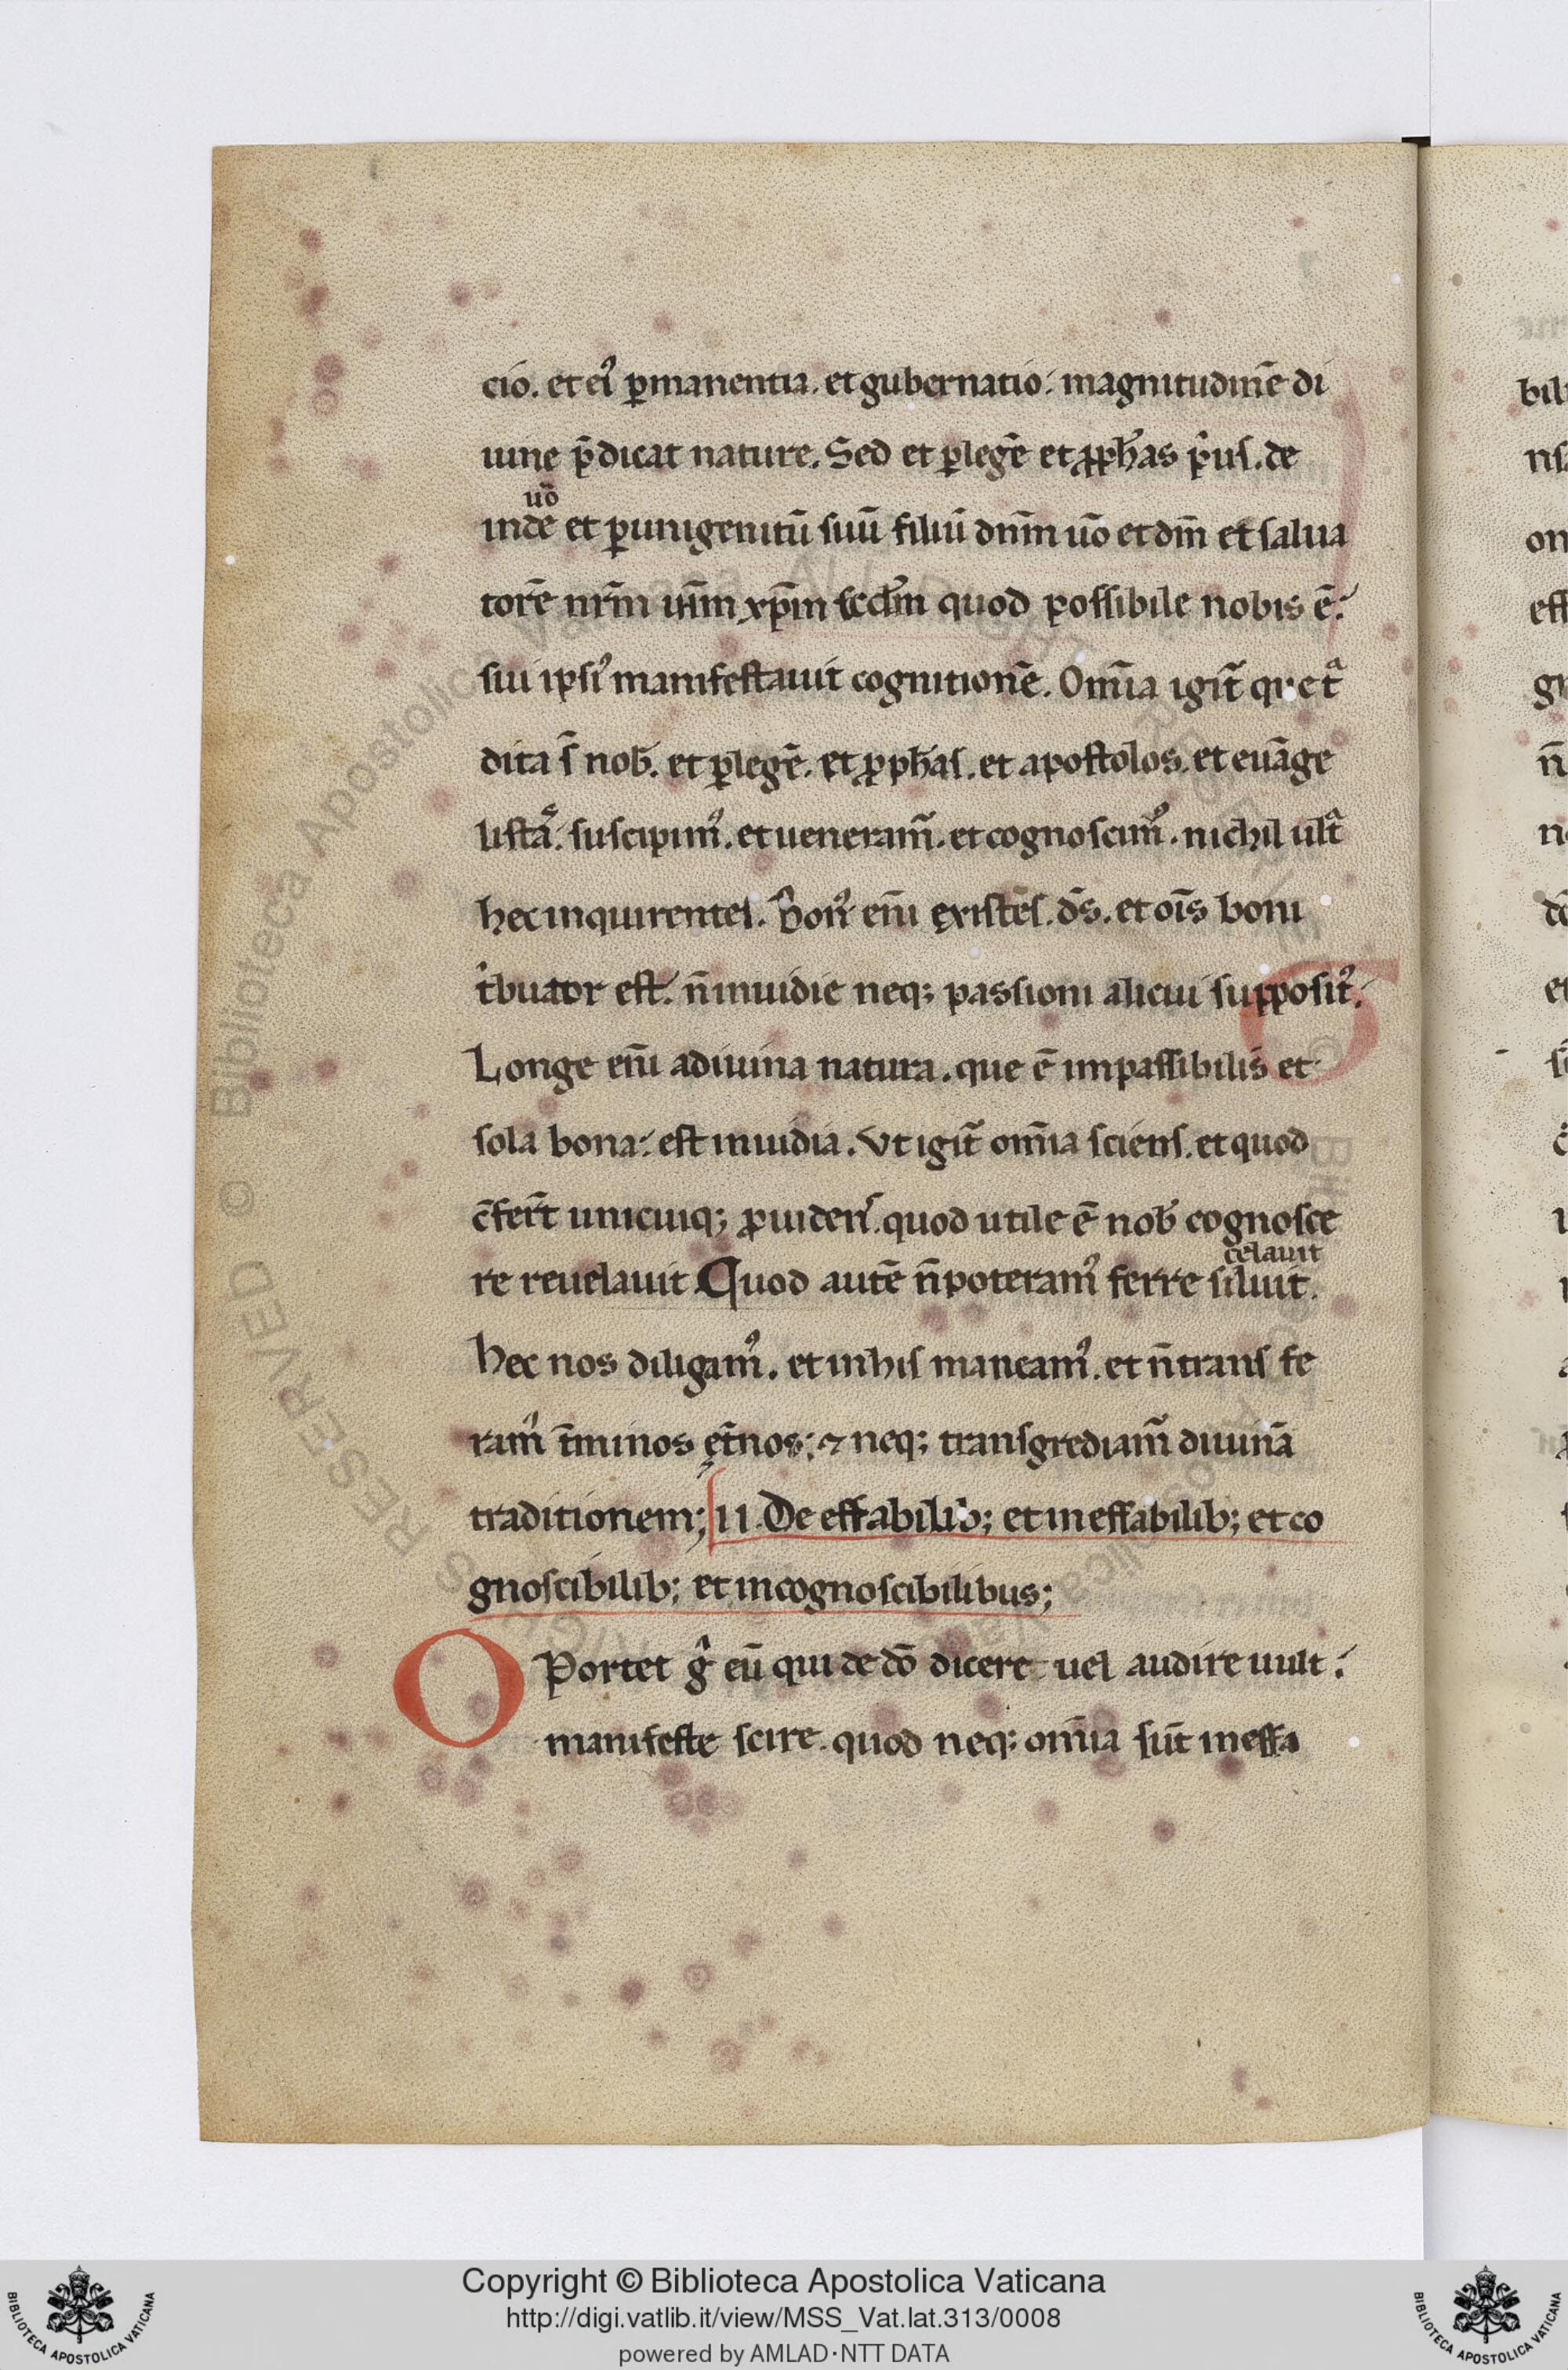 cio. et ei᷒ p̱manentia. et gubernatio: magnitudinē di
uine p̄dicat nature. Sed et ꝑlegē et ꝓph̄as p̓us. de
uō
inde et ꝑunigenitū suū filiū dn̄m uō et dm̄ et salua
torē nr̄m ih̄m xp̄m scd̄m quod possibile nobis ē:
sui ipsi᷒ manifestauit cognitionē. Om̄ia igit̄ q̨ etᷓ
dita s̄ nob̄. et ꝑlegē. et ꝓph̄as. et apostolos. et euāge
listā: suscipim᷒. et ueneram̄. et cognoscim᷒. nichil ultᷓ
hec inquirentes. Bon᷒ eni̅ existēs. ds̄. et oīs boni
t̓butor est: n̄ inuidie neq; passioni alicui supposit᷒:
Longe eni̅ adiuina natura. que ē impassibilis et
sola bona: est inuidia. Vt igit̄ om̄ia sciens. et quod
c̄fert̄ unicuiq; ꝓuidens. quod utile ē nob̄ cognosce
celauit
re reuelauit Quod autē n̄ poteram᷒ ferre siluit.
hec nos diligam᷒. et inhis maneam᷒. et n̄ trans fe
ram᷒ t̄minos et̄nos: ⁊ neq; transgrediam̄ diuinā
traditionem; II. De effabilib; et ineffabilib; et co
gnoscibilib; et incognoscibilibus;
OPortet g̊ eū qui de dō dicere uel audire uult:
manifeste scire. quod neq; om̄ia sūt ineffa
Copyright © Biblioteca Apostolica Vaticana
http://digi.vatlib.it/view/MSS_Vat.lat.313/0008
powered by AMLAD·NTT DATA